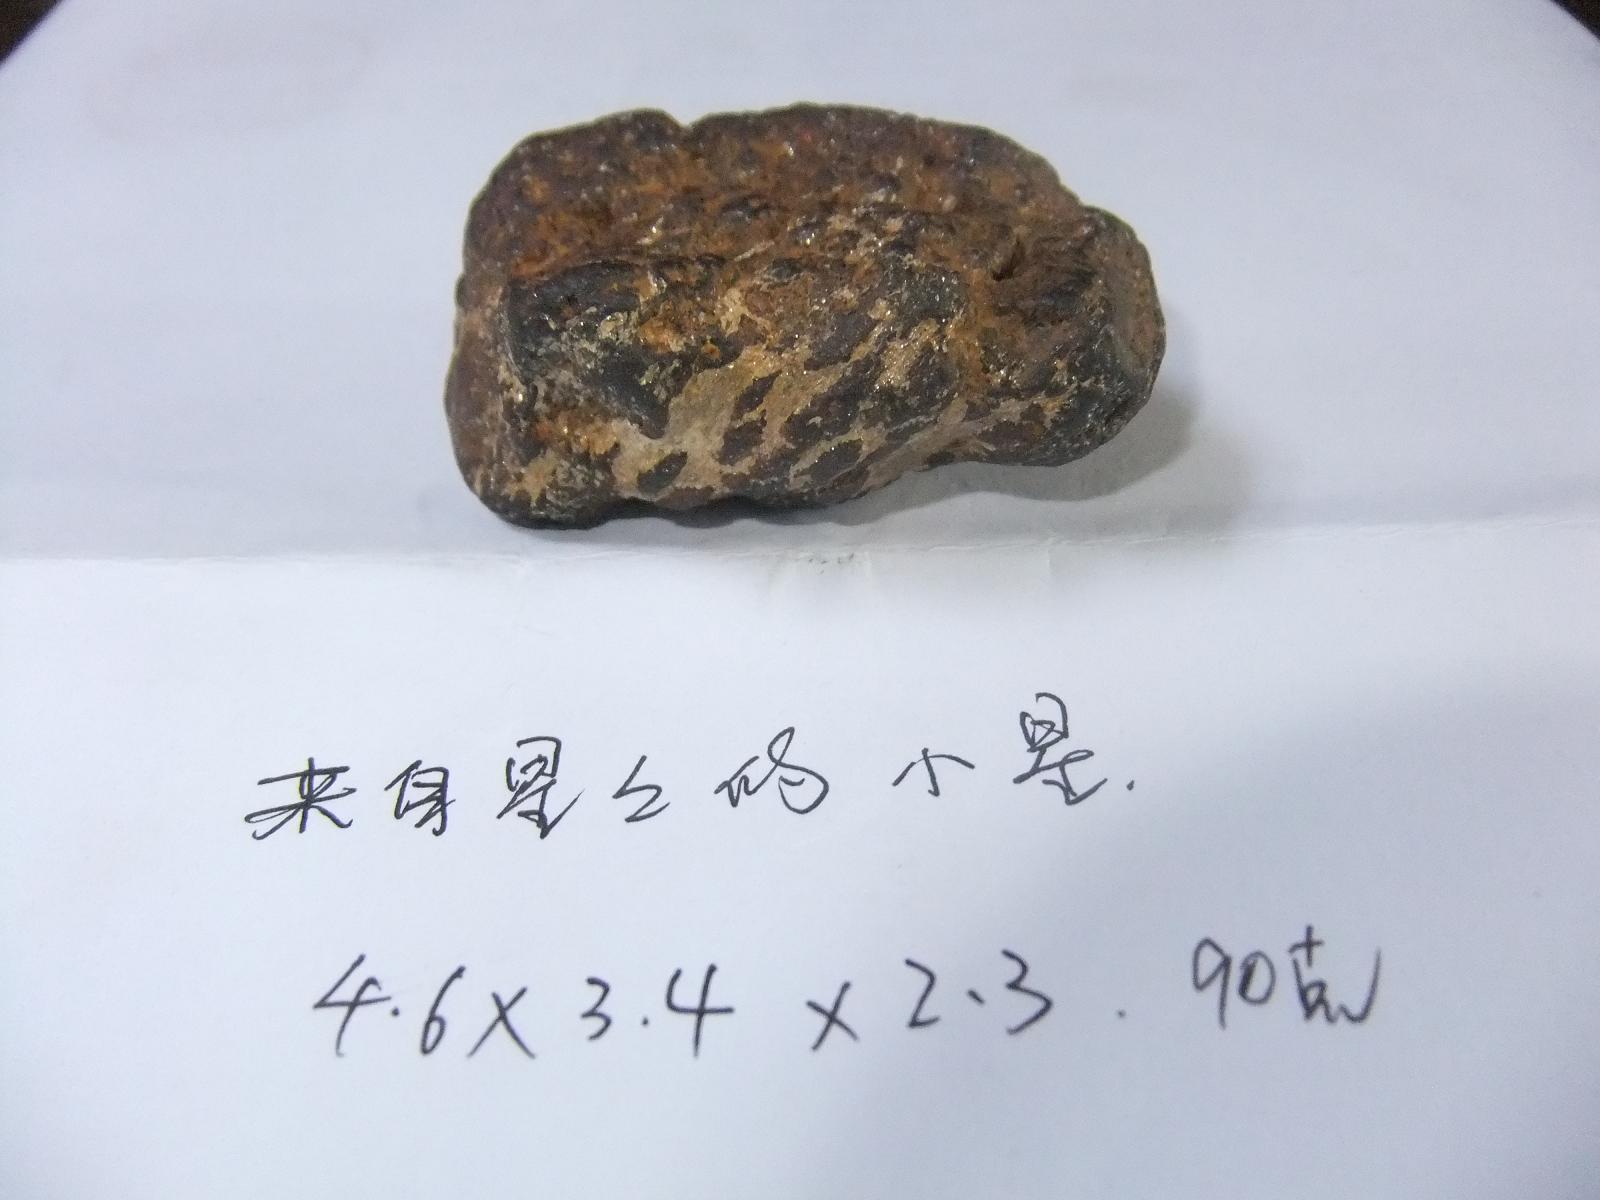 来自星上的小星.
4.6 x 3.4 x 2.3. 90克